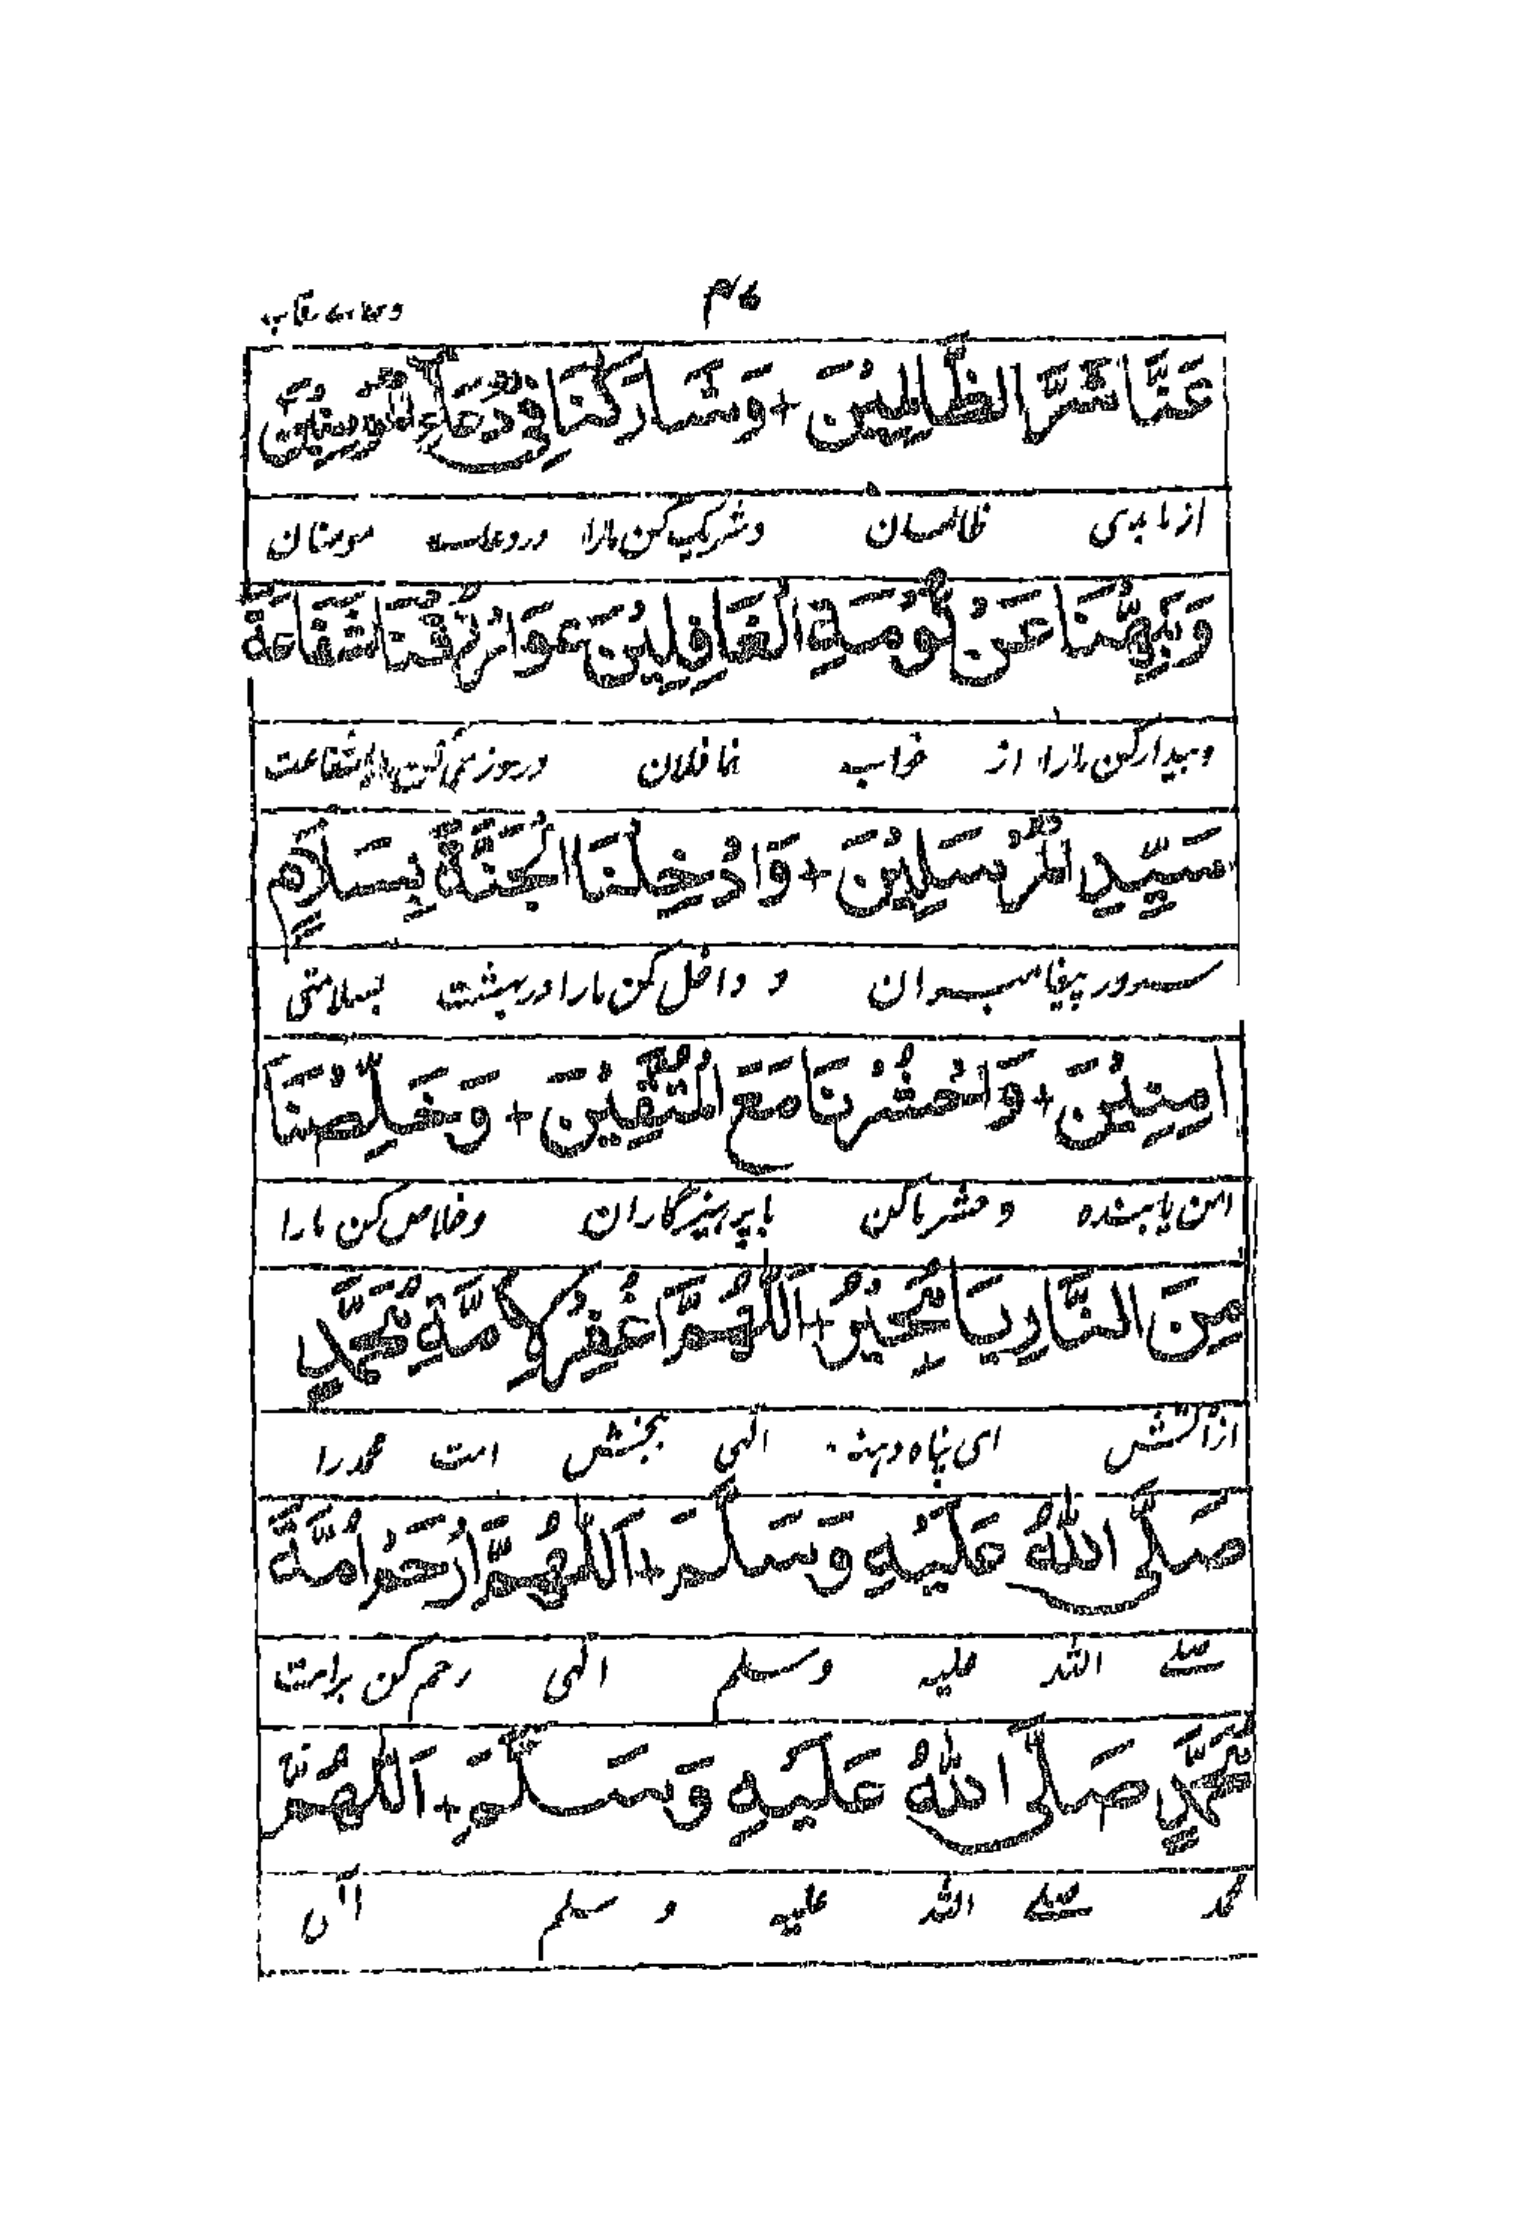 عَنَّا شَرَّ الظَّالِمِيْنَ + وَشَارِكْنَا فِيْ دُعَاءِ الْمُؤْمِنِيْنَ
از ما بدی ظالمان و شریک کن مارا در دعاے مومنان
وَنَبِّهْنَا عَنْ نَوْمَةِ الْغَافِلِيْنَ + وَارْزُقْنَا شَفَاعَةَ
و بیدار کن مارا از خواب غافلان و روزی کن مارا شفاعت
سَيِّدِ الْمُرْسَلِيْنَ + وَاَدْخِلْنَا الْجَنَّةَ بِسَلَامٍ
سرور پیغامبران و داخل کن مارا در بهشت بسلامتی
اٰمِنِيْنَ + وَاحْشُرْنَا مَعَ الْمُتَّقِيْنَ + وَخَلِّصْنَا
امن یابنده و حشر ما کن با پرهیزگاران و خلاص کن مارا
مِنَ النَّارِ يَا مُجِيْرُ + اَللّٰهُمَّ اغْفِرْ لِاُمَّةِ مُحَمَّدٍ
از آتش ای پناه دهنده الهی ببخش امت محمد را
صَلَّى اللّٰهُ عَلَيْهِ وَسَلَّمَ + اَللّٰهُمَّ ارْحَمْ اُمَّةَ
صلے الله علیه و سلم الهی رحم کن بر امت
مُحَمَّدٍ صَلَّى اللّٰهُ عَلَيْهِ وَسَلَّمَ + اَللّٰهُمَّ
محمد صلے الله علیه و سلم